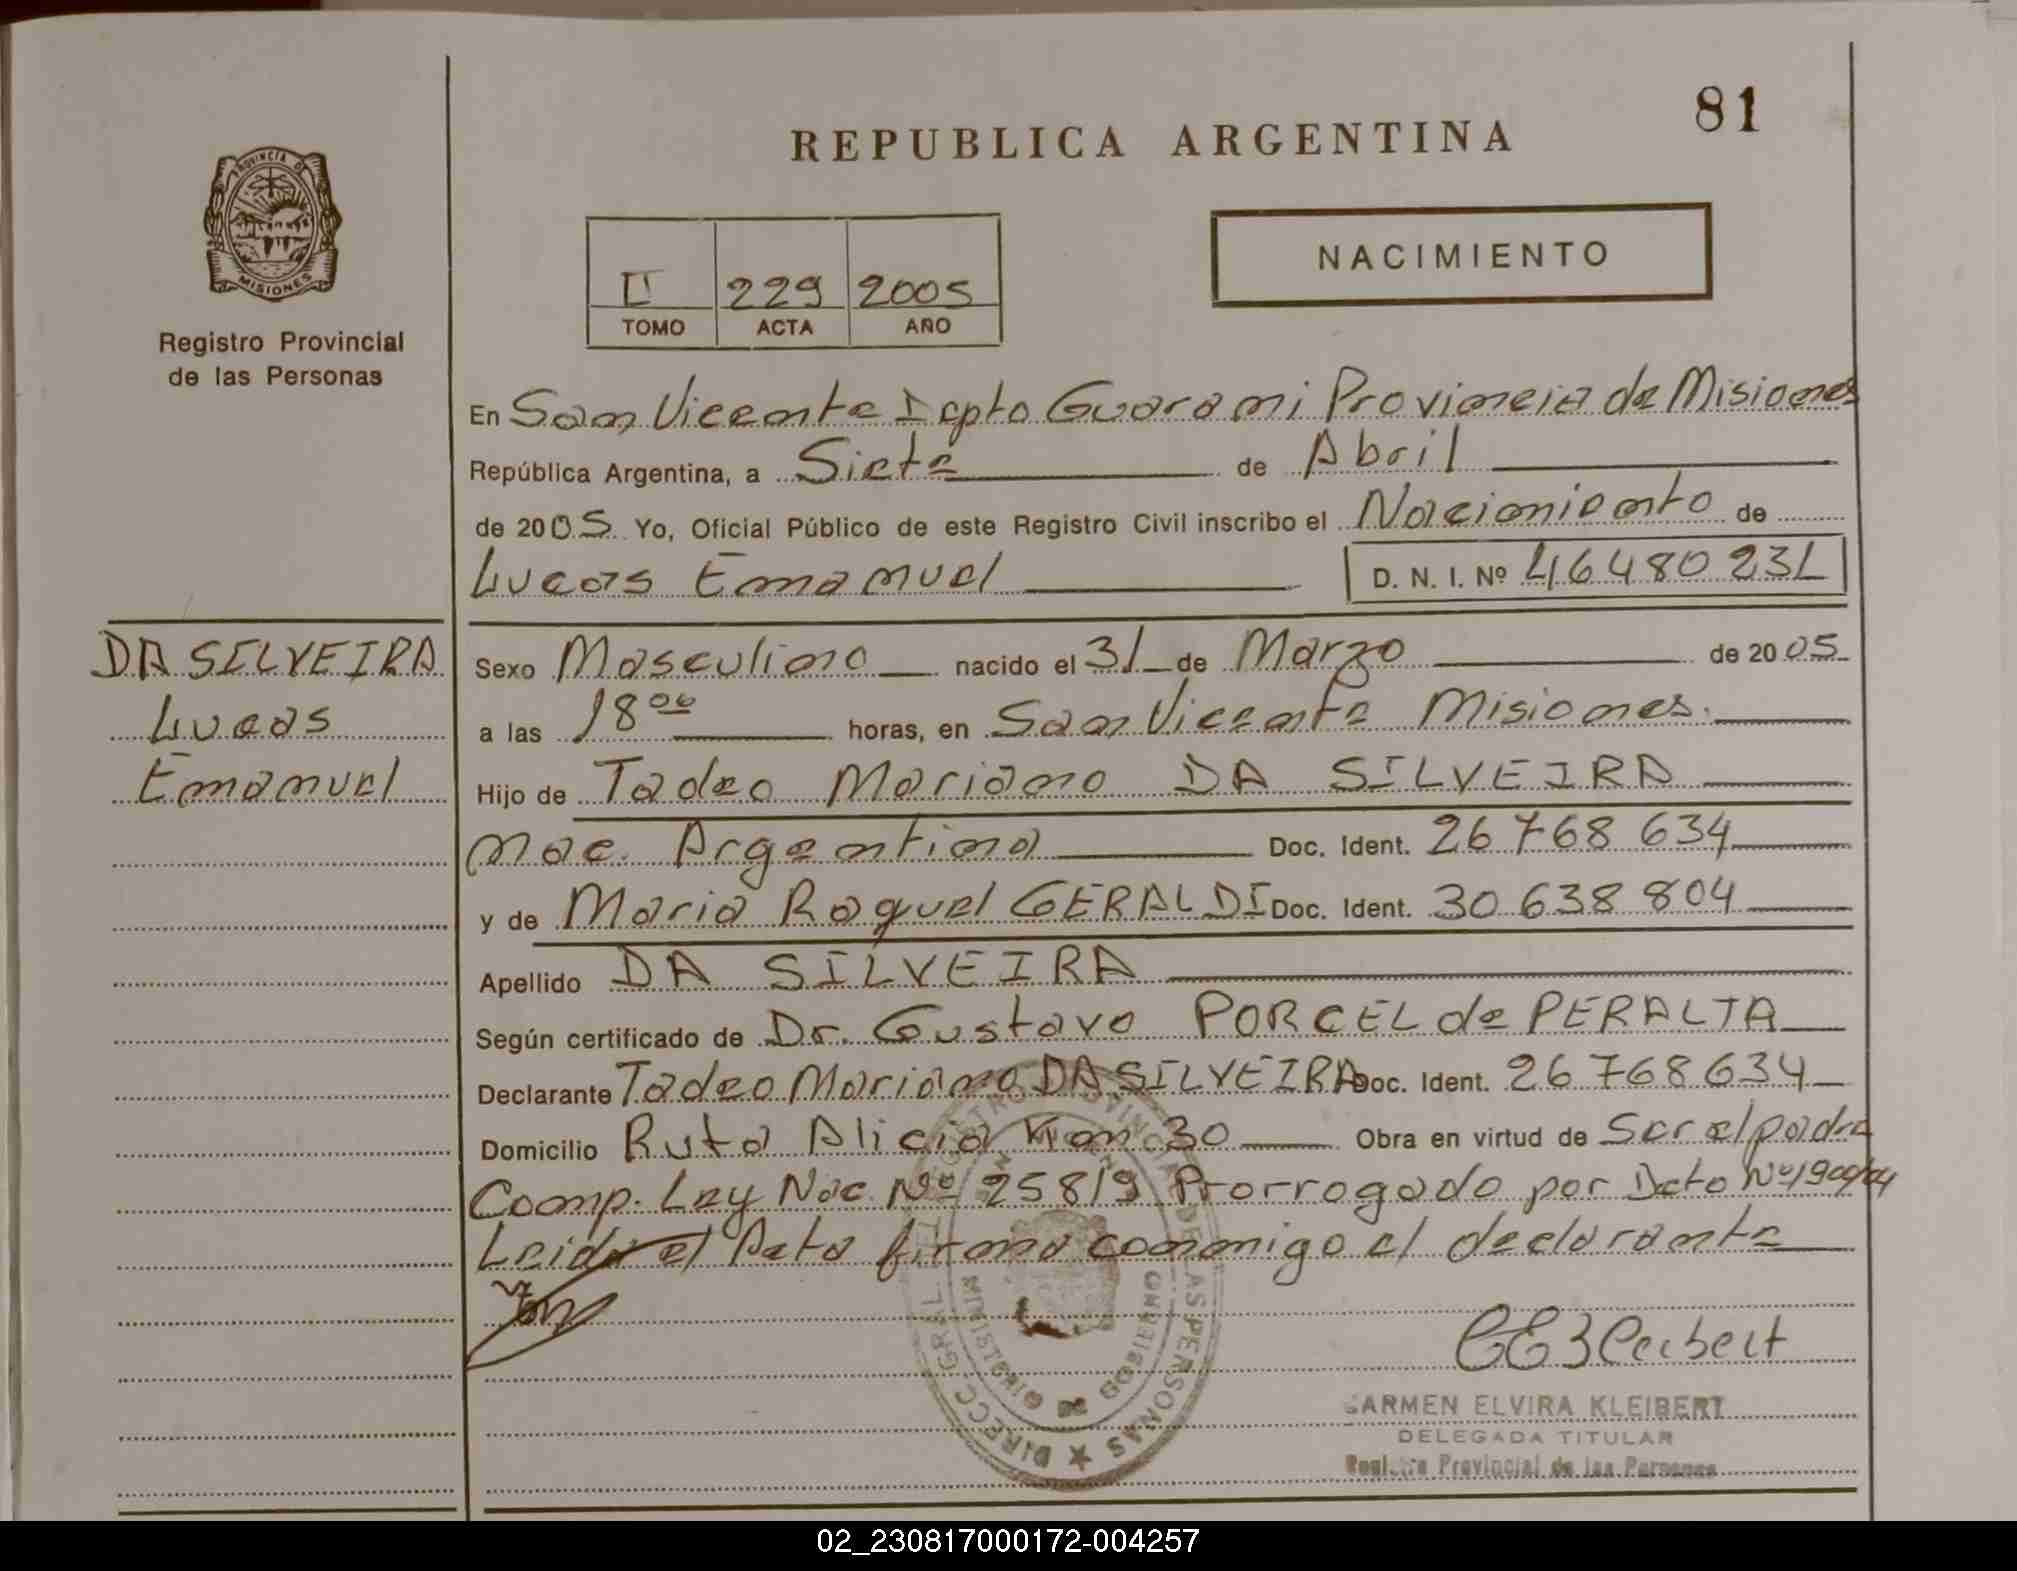 81
REPUBLICA ARGENTINA
PROVINCIA DE
MISIONES
Registro Provincial
de las Personas
NACIMIENTO
II 229 2005
TOMO ACTA AÑO
En San Vicente Dpto Guarani Provincia de Misiones
República Argentina, a Siete de Abril
de 2005 Yo, Oficial Público de este Registro Civil inscribo el Nacimiento de
Lucas Emanuel D. N. I. Nº 46480231
DA SILVEIRA
Lucas
Emanuel
Sexo Masculino nacido el 31 de Marzo de 2005
a las 18 00 horas, en San Vicente Misiones.
Hijo de Tadeo Mariano DA SILVEIRA
Nac. Argentina Doc. Ident. 26 768 634
y de Maria Raquel GERALDI Doc. Ident. 30 638 804
Apellido DA SILVEIRA
Según certificado de Dr. Gustavo PORCEL de PERALTA
Declarante Tadeo Mariano DA SILVEIRA Doc. Ident. 26 768 634
Domicilio Ruta Alicia Km 30 Obra en virtud de Ser el padre
Comp. Ley Nac. Nº 25819 Prorrogado por Dcto Nº 1900/04
Leida el Acta firma conmigo el declarante
CARMEN ELVIRA KLEIBERT
DELEGADA TITULAR
Registro Provincial de las Personas
DIRECC. GRAL. DEL REGISTRO PROVINCIAL DE LAS PERSONAS
MINISTERIO DE GOBIERNO
02_230817000172-004257